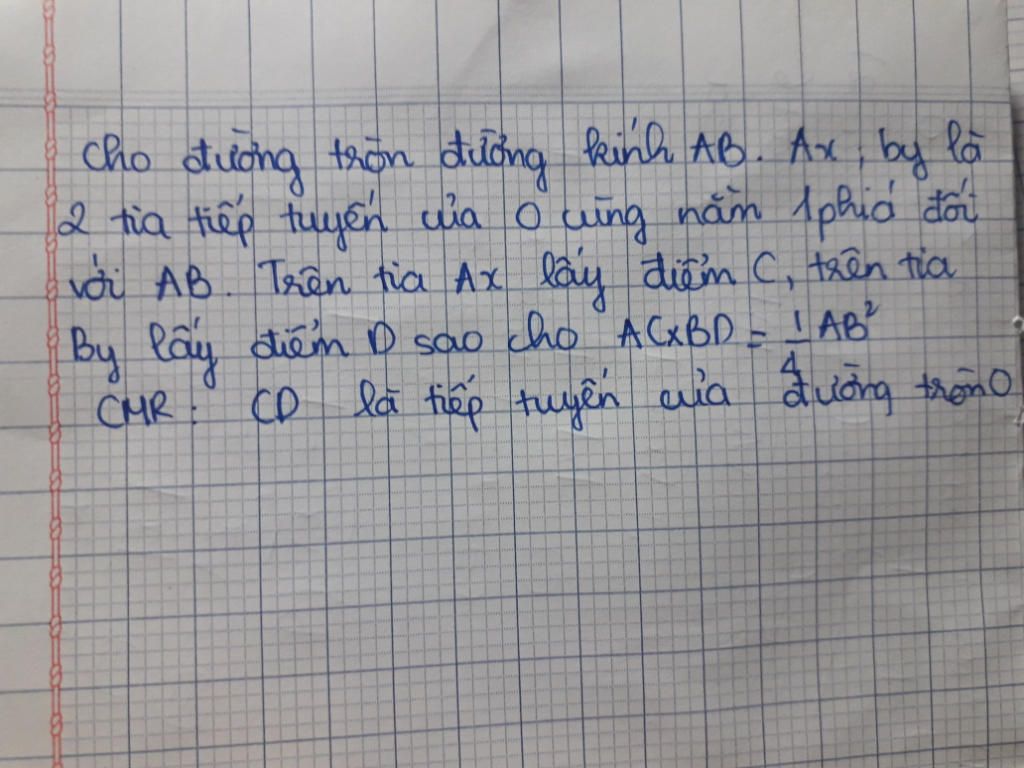 Cho đường tròn đường kính AB. Ax, by là
2 tia tiếp tuyến của O cùng nằm 1 phiá đối
với AB. Trên tia Ax lấy điểm C, trên tia
By lấy điểm D sao cho AC x BD = 1/4 AB²
CMR: CD là tiếp tuyến của đường tròn O